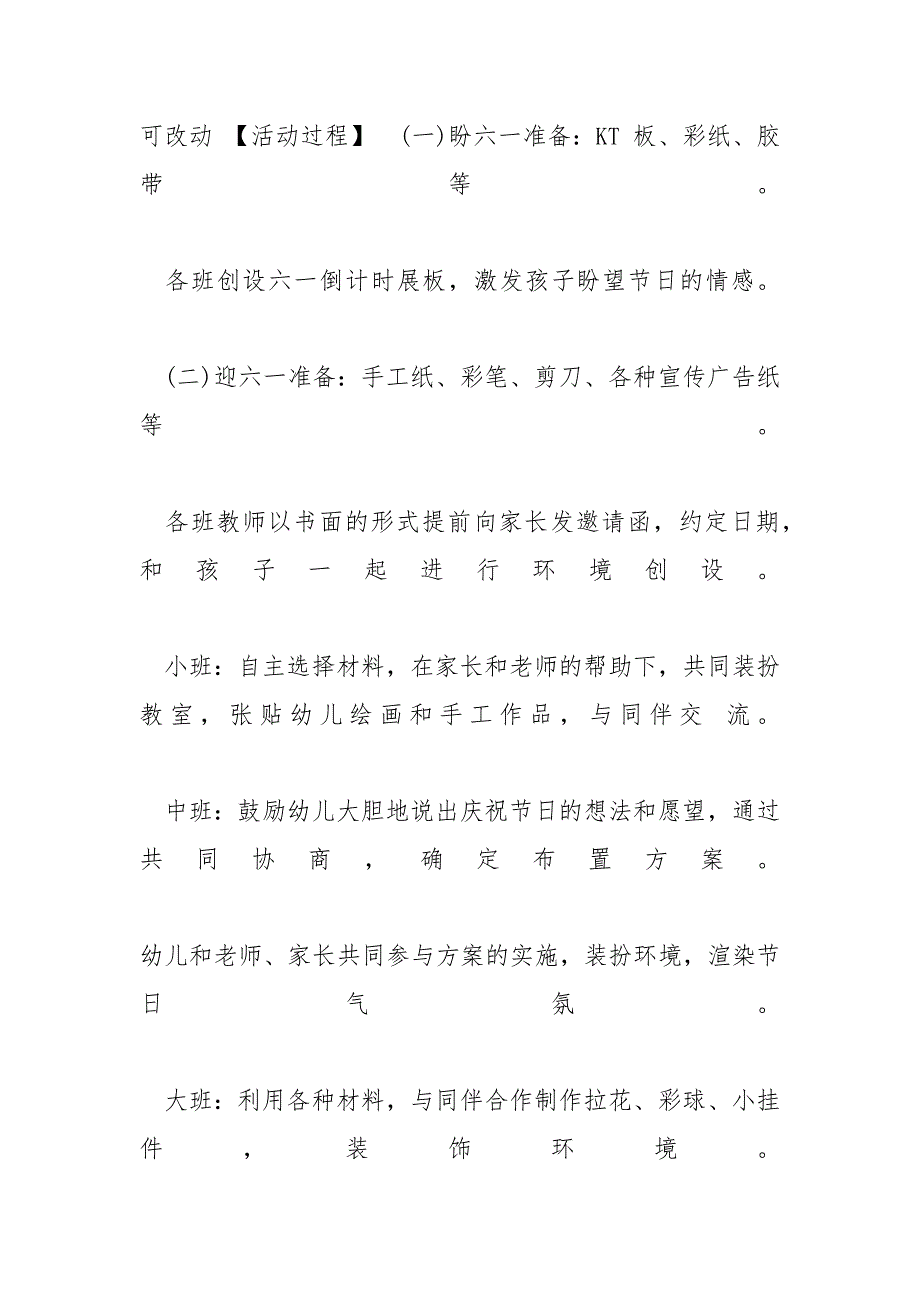 可改动 【活动过程】 (一)盼六一准备：KT 板、彩纸、胶
带等。
各班创设六一倒计时展板，激发孩子盼望节日的情感。
(二)迎六一准备：手工纸、彩笔、剪刀、各种宣传广告纸
等。
各班教师以书面的形式提前向家长发邀请函，约定日期，
和孩子一起进行环境创设。
小班：自主选择材料，在家长和老师的帮助下，共同装扮
教室，张贴幼儿绘画和手工作品，与同伴交 流。
中班：鼓励幼儿大胆地说出庆祝节日的想法和愿望，通过
共同协商，确定布置方案。
幼儿和老师、家长共同参与方案的实施，装扮环境，渲染节
日气氛。
大班：利用各种材料，与同伴合作制作拉花、彩球、小挂
件，装饰环境。